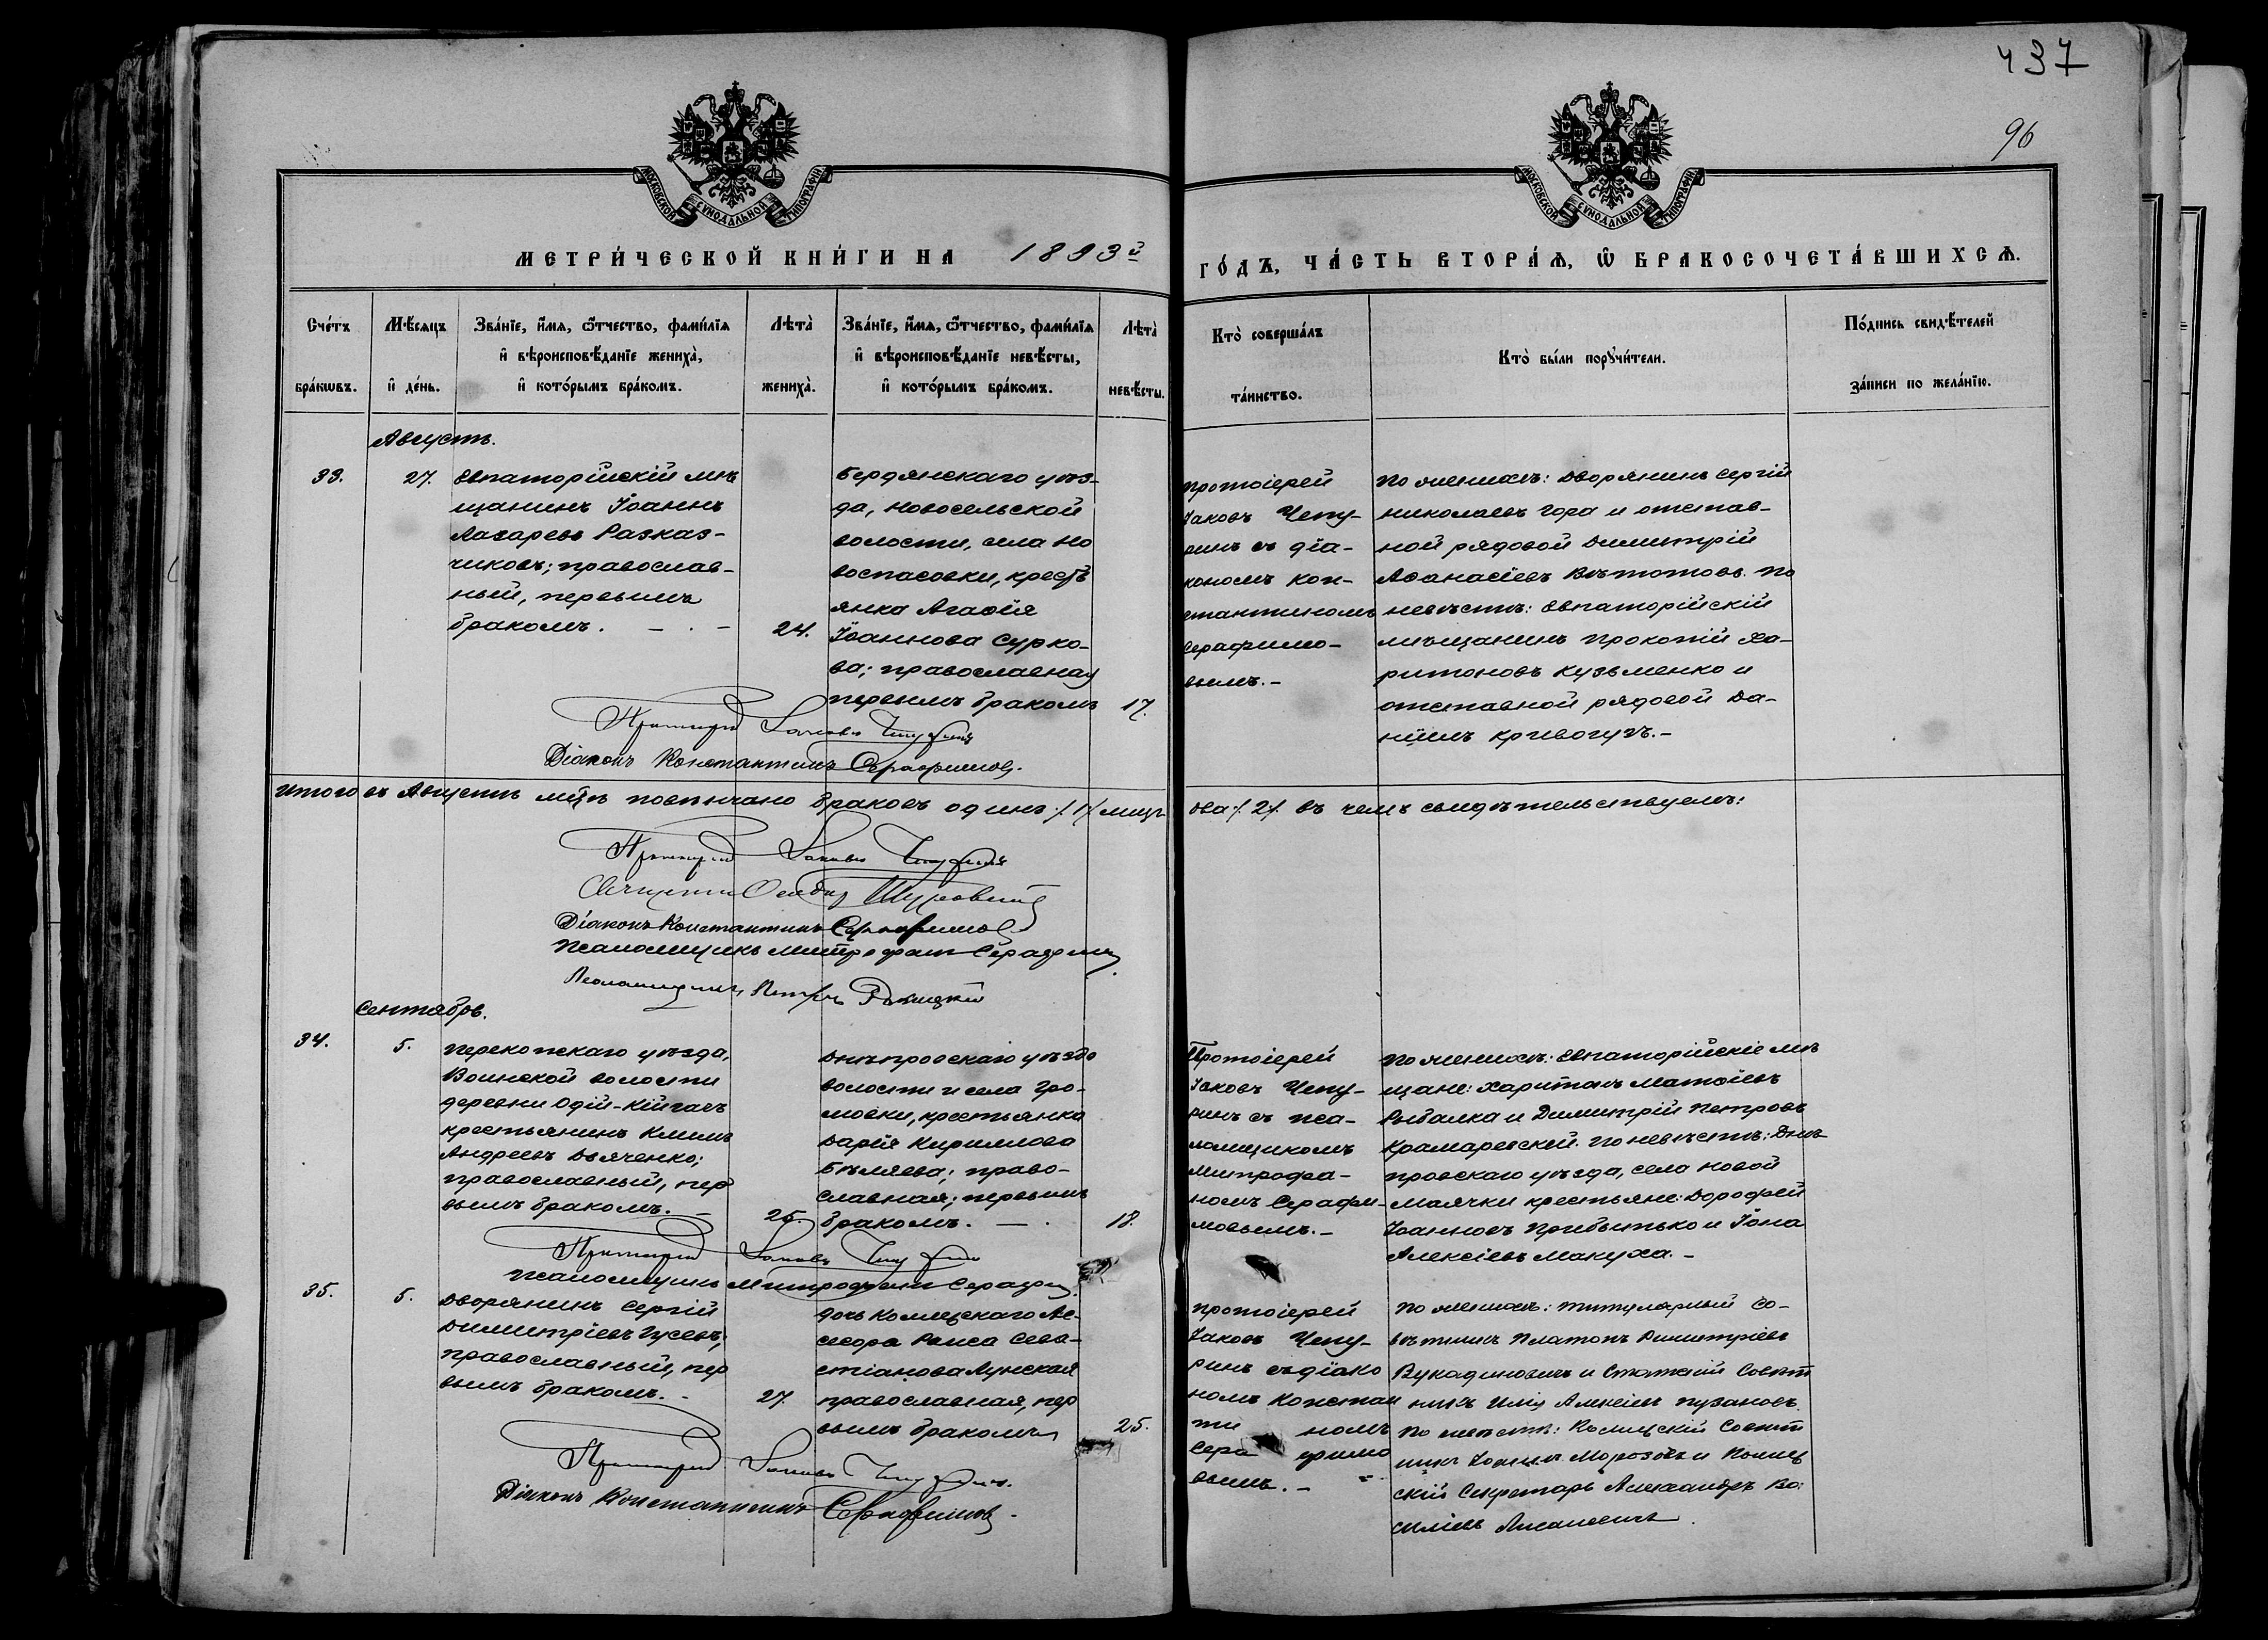 437
96
МОСКОВСКОЙ СУНОДАЛЬНОЙ ТИПОГРАФІИ
МОСКОВСКОЙ СУНОДАЛЬНОЙ ТИПОГРАФІИ
МЕТРИ́ЧЕСКОЙ КНИ́ГИ НА 1893й
ГО́ДЪ, ЧА́СТЬ ВТОРА́Ѧ, Ѽ БРАКОСОЧЕТА́ВШИХСѦ.
Сче́тъ бра́кѡвъ.
Мѣ́сяцъ и҆ де́нь.
Зва́нїе, и҆́мѧ, ѻ҆́тчество, фами́лїѧ
и҆ вѣроисповѣ́данїе жениха̀,
и҆ кото́рымъ бра́комъ.
Лѣта̀ жениха̀.
Зва́нїе, и҆́мѧ, ѻ҆́тчество, фами́лїѧ
и҆ вѣроисповѣ́данїе невѣ́сты,
и҆ кото́рымъ бра́комъ.
Лѣта̀ невѣ́сты.
Кто̀ соверша́лъ
та́инство.
Кто̀ бы́ли порꙋчи́тели.
По́дпись свидѣ́телей
за́писи по жела́нїю.
Августъ.
33.
27.
Евпаторійскій мѣ
щанинъ Іоаннъ
Лазаревъ Разказ-
чиковъ; православ-
ный, первымъ
бракомъ. — . —
24.
Бердянскаго уѣз-
да, Новосельской
волости, села Но
воспасовки, кресть
янка Агафія
Іоаннова Сурко-
ва; православная
первымъ бракомъ
17.
Протоіерей
Іаковъ Чепу-
ринъ съ діа-
кономъ Кон-
стантиномъ
Серафимо-
вымъ. —
По женихѣ: дворянинъ Сергій
Николаевъ Гора и отстав-
ной рядовой Димитрій
Аѳанасіевъ Вѣтотовъ. По
невѣстѣ: Евпаторійскій
мѣщанинъ Прокопій Ха-
ритоновъ Кузьменко и
отставной рядовой Да-
ніилъ Кривогузъ. —
Протоіерей Іаковъ Чепуринъ
Діаконъ Константинъ Серафимовъ.
Итого въ Августѣ мцѣ повѣнчано браковъ одинъ /1/ лицъ
два /2/. въ чемъ свидѣтельствуемъ:
Протоіерей Іаковъ Чепуринъ
Священникъ
Діаконъ Константинъ Серафимовъ
Псаломщикъ Митрофанъ Серафимовъ
Псаломщикъ Петръ
Сентябрь.
34.
5.
Перекопскаго уѣзда,
Воинской волости
деревни Одій-Кійгачъ
крестьянинъ Климъ
Андреевъ Дьяченко;
православный, пер
вымъ бракомъ. —
25.
Днѣпровскаго уѣзда
волости и села Гро-
мовки, крестьянка
Дарія Кириллова
Бѣляева; право-
славная; первымъ
бракомъ. — .
18.
Протоіерей
Іаковъ Чепу-
ринъ съ пса-
ломщикомъ
Митрофа-
номъ Серафи-
мовымъ. —
По женихѣ: Евпаторійскіе мѣ
щане: Харитонъ Матѳіевъ
Рыбалка и Димитрій Петровъ
Крамаревскій. По невѣстѣ: Днѣ-
провскаго уѣзда, села Новой
Маячки крестьяне: Дорофей
Іоанновъ Прибытько и Іона
Алексіевъ Макуха. —
Протоіерей Іаковъ Чепуринъ
Псаломщикъ Митрофанъ Серафимовъ.
35.
5.
Дворянинъ Сергій
Димитріевъ Гусевъ;
православный, пер
вымъ бракомъ. —
27.
Дочь Коллежскаго Ас-
сесора Раиса Сева-
стіанова Лунская
православная, пер
вымъ бракомъ
25.
Протоіерей
Іаковъ Чепу-
ринъ съ діако
номъ Констан
ти номъ
Сера фимо
вымъ. —
По женихѣ: титулярный Со-
вѣтникъ Платонъ Димитріевъ
Вукадиновичъ и Статскій Совѣт
никъ Илія Алексіевъ Пузановъ.
По невѣстѣ: Колежскій Совѣт
никъ Іоаннъ Морозовъ и Коллеж
скій Секретарь Александръ Ва-
силіевъ
Протоіерей Іаковъ Чепуринъ.
Діаконъ Константинъ Серафимовъ.